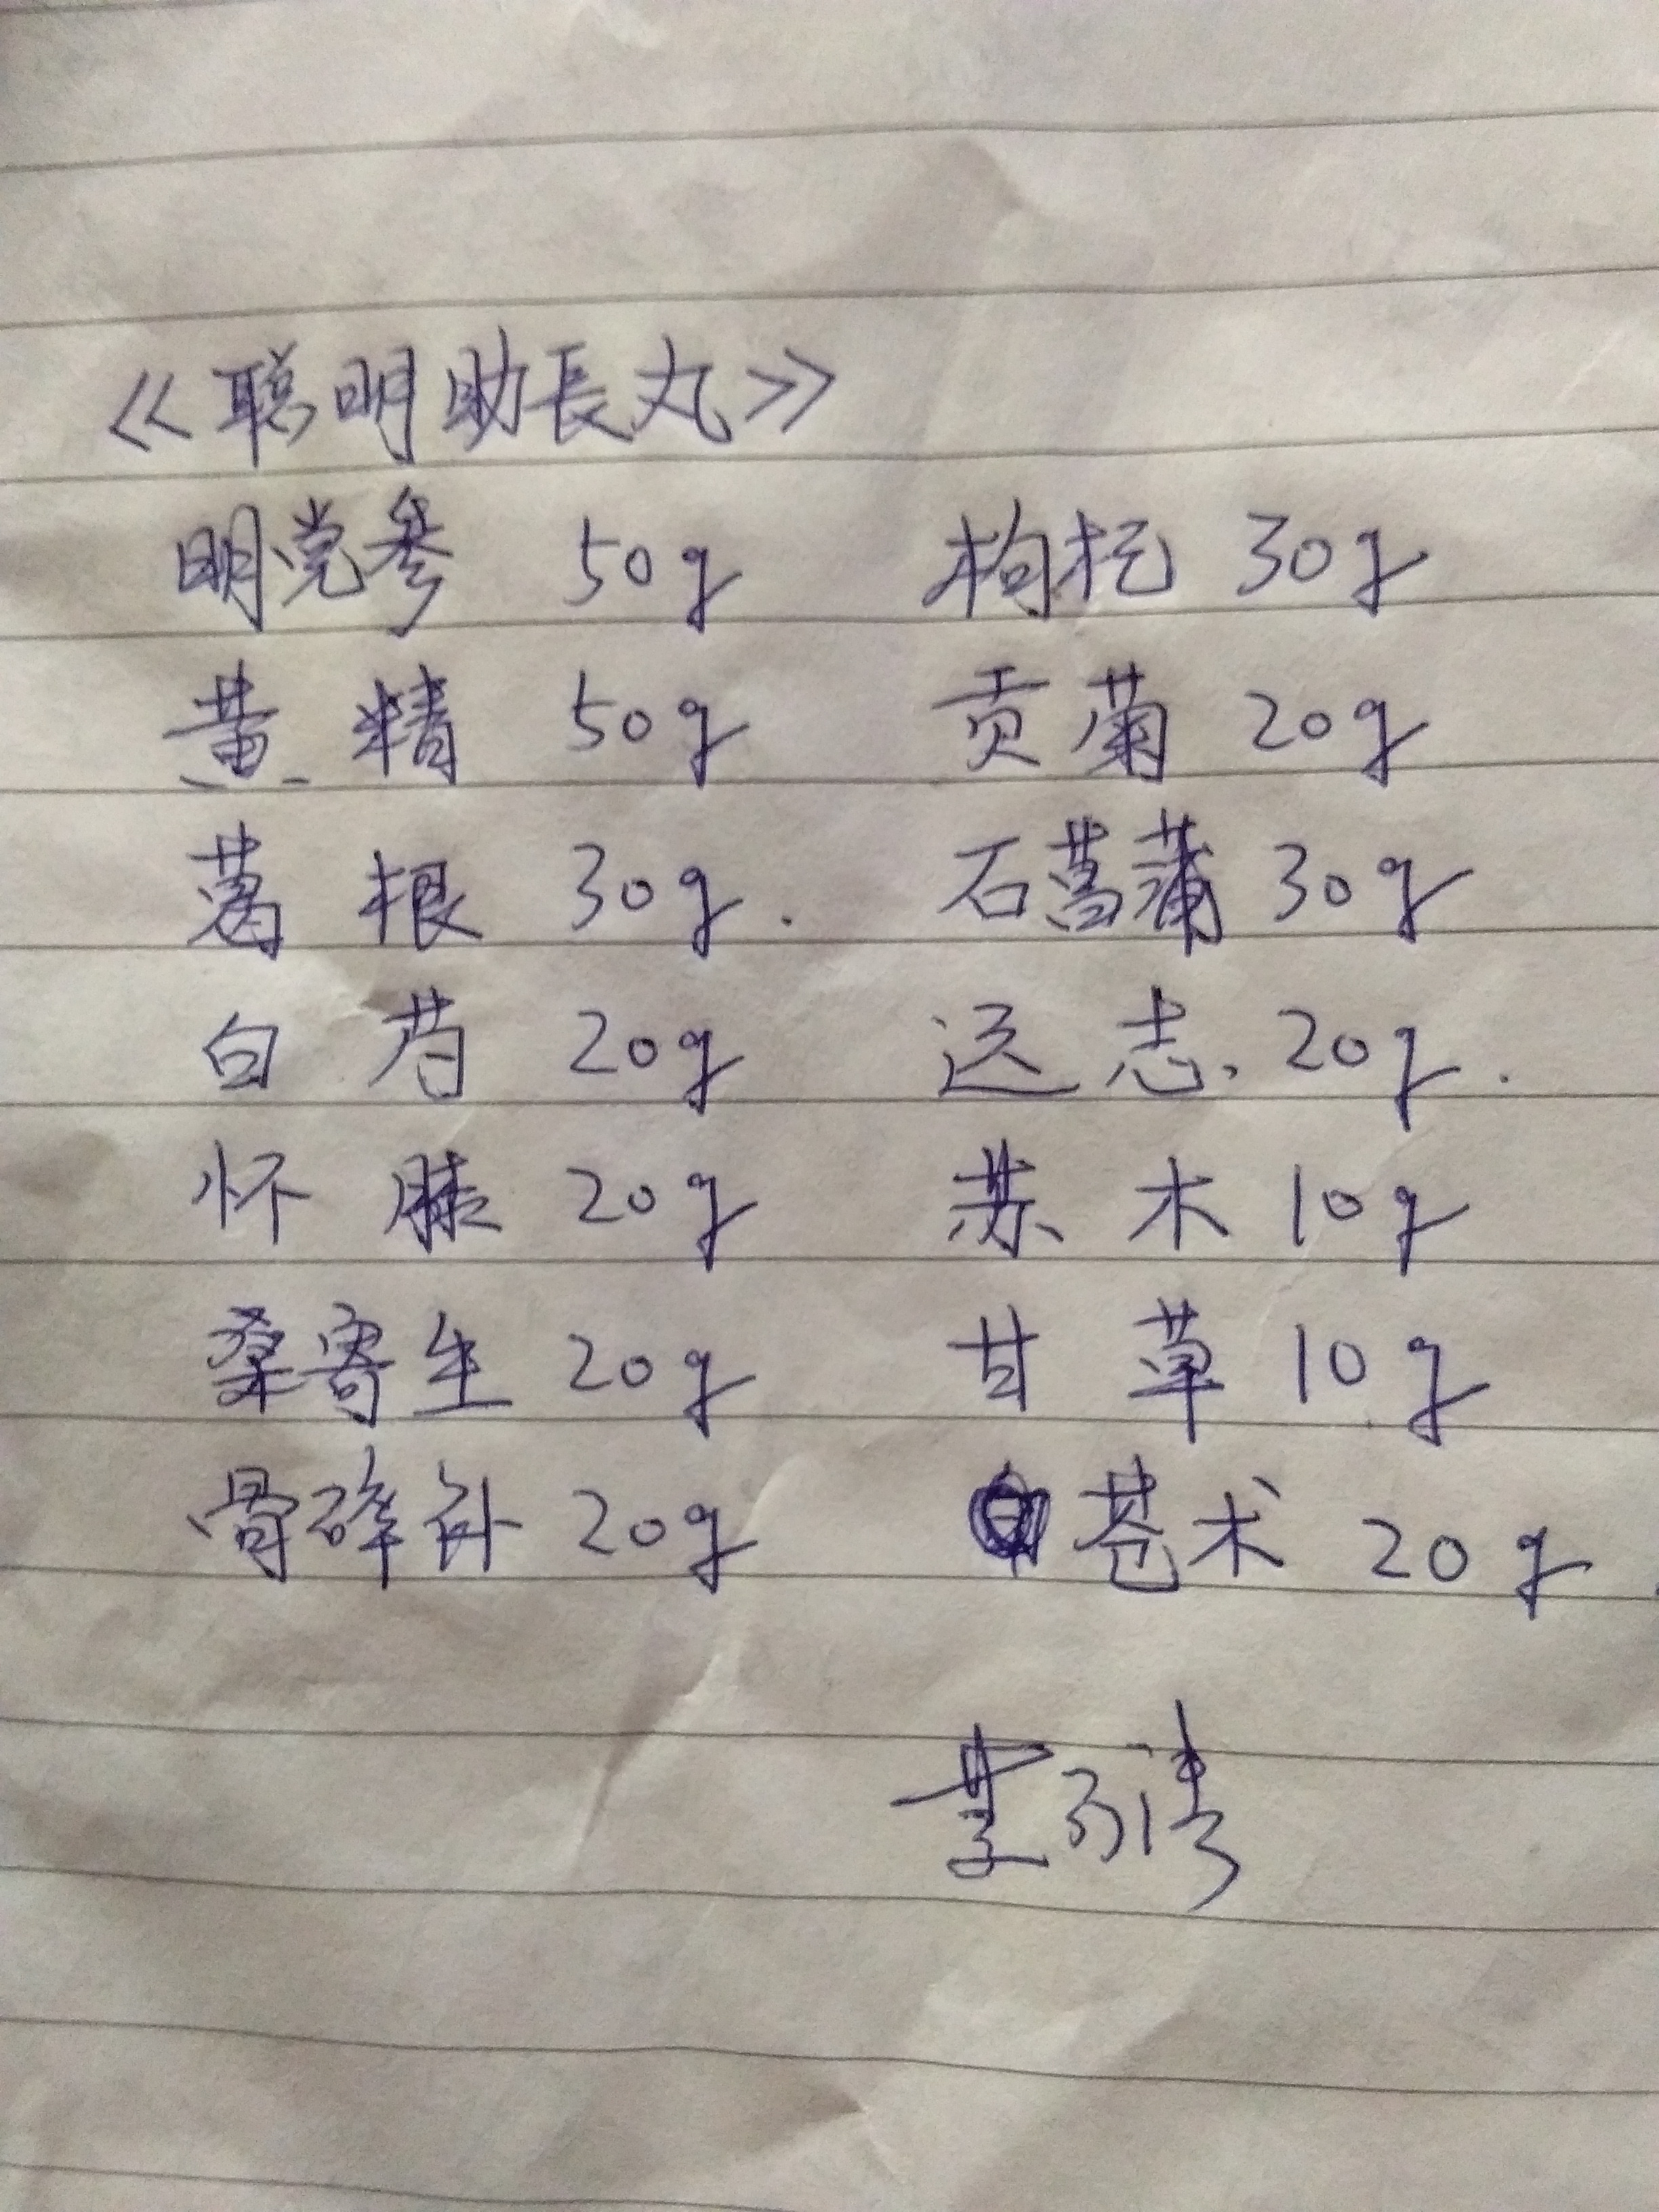 《聪明助長丸》
明党参 50g 枸杞 30g
黄精 50g 贡菊 20g
葛根 30g. 石菖蒲 30g
白芍 20g 远志. 20g.
怀膝 20g 苏木 10g
桑寄生 20g 甘草 10g
骨碎补 20g 苍术 20g.